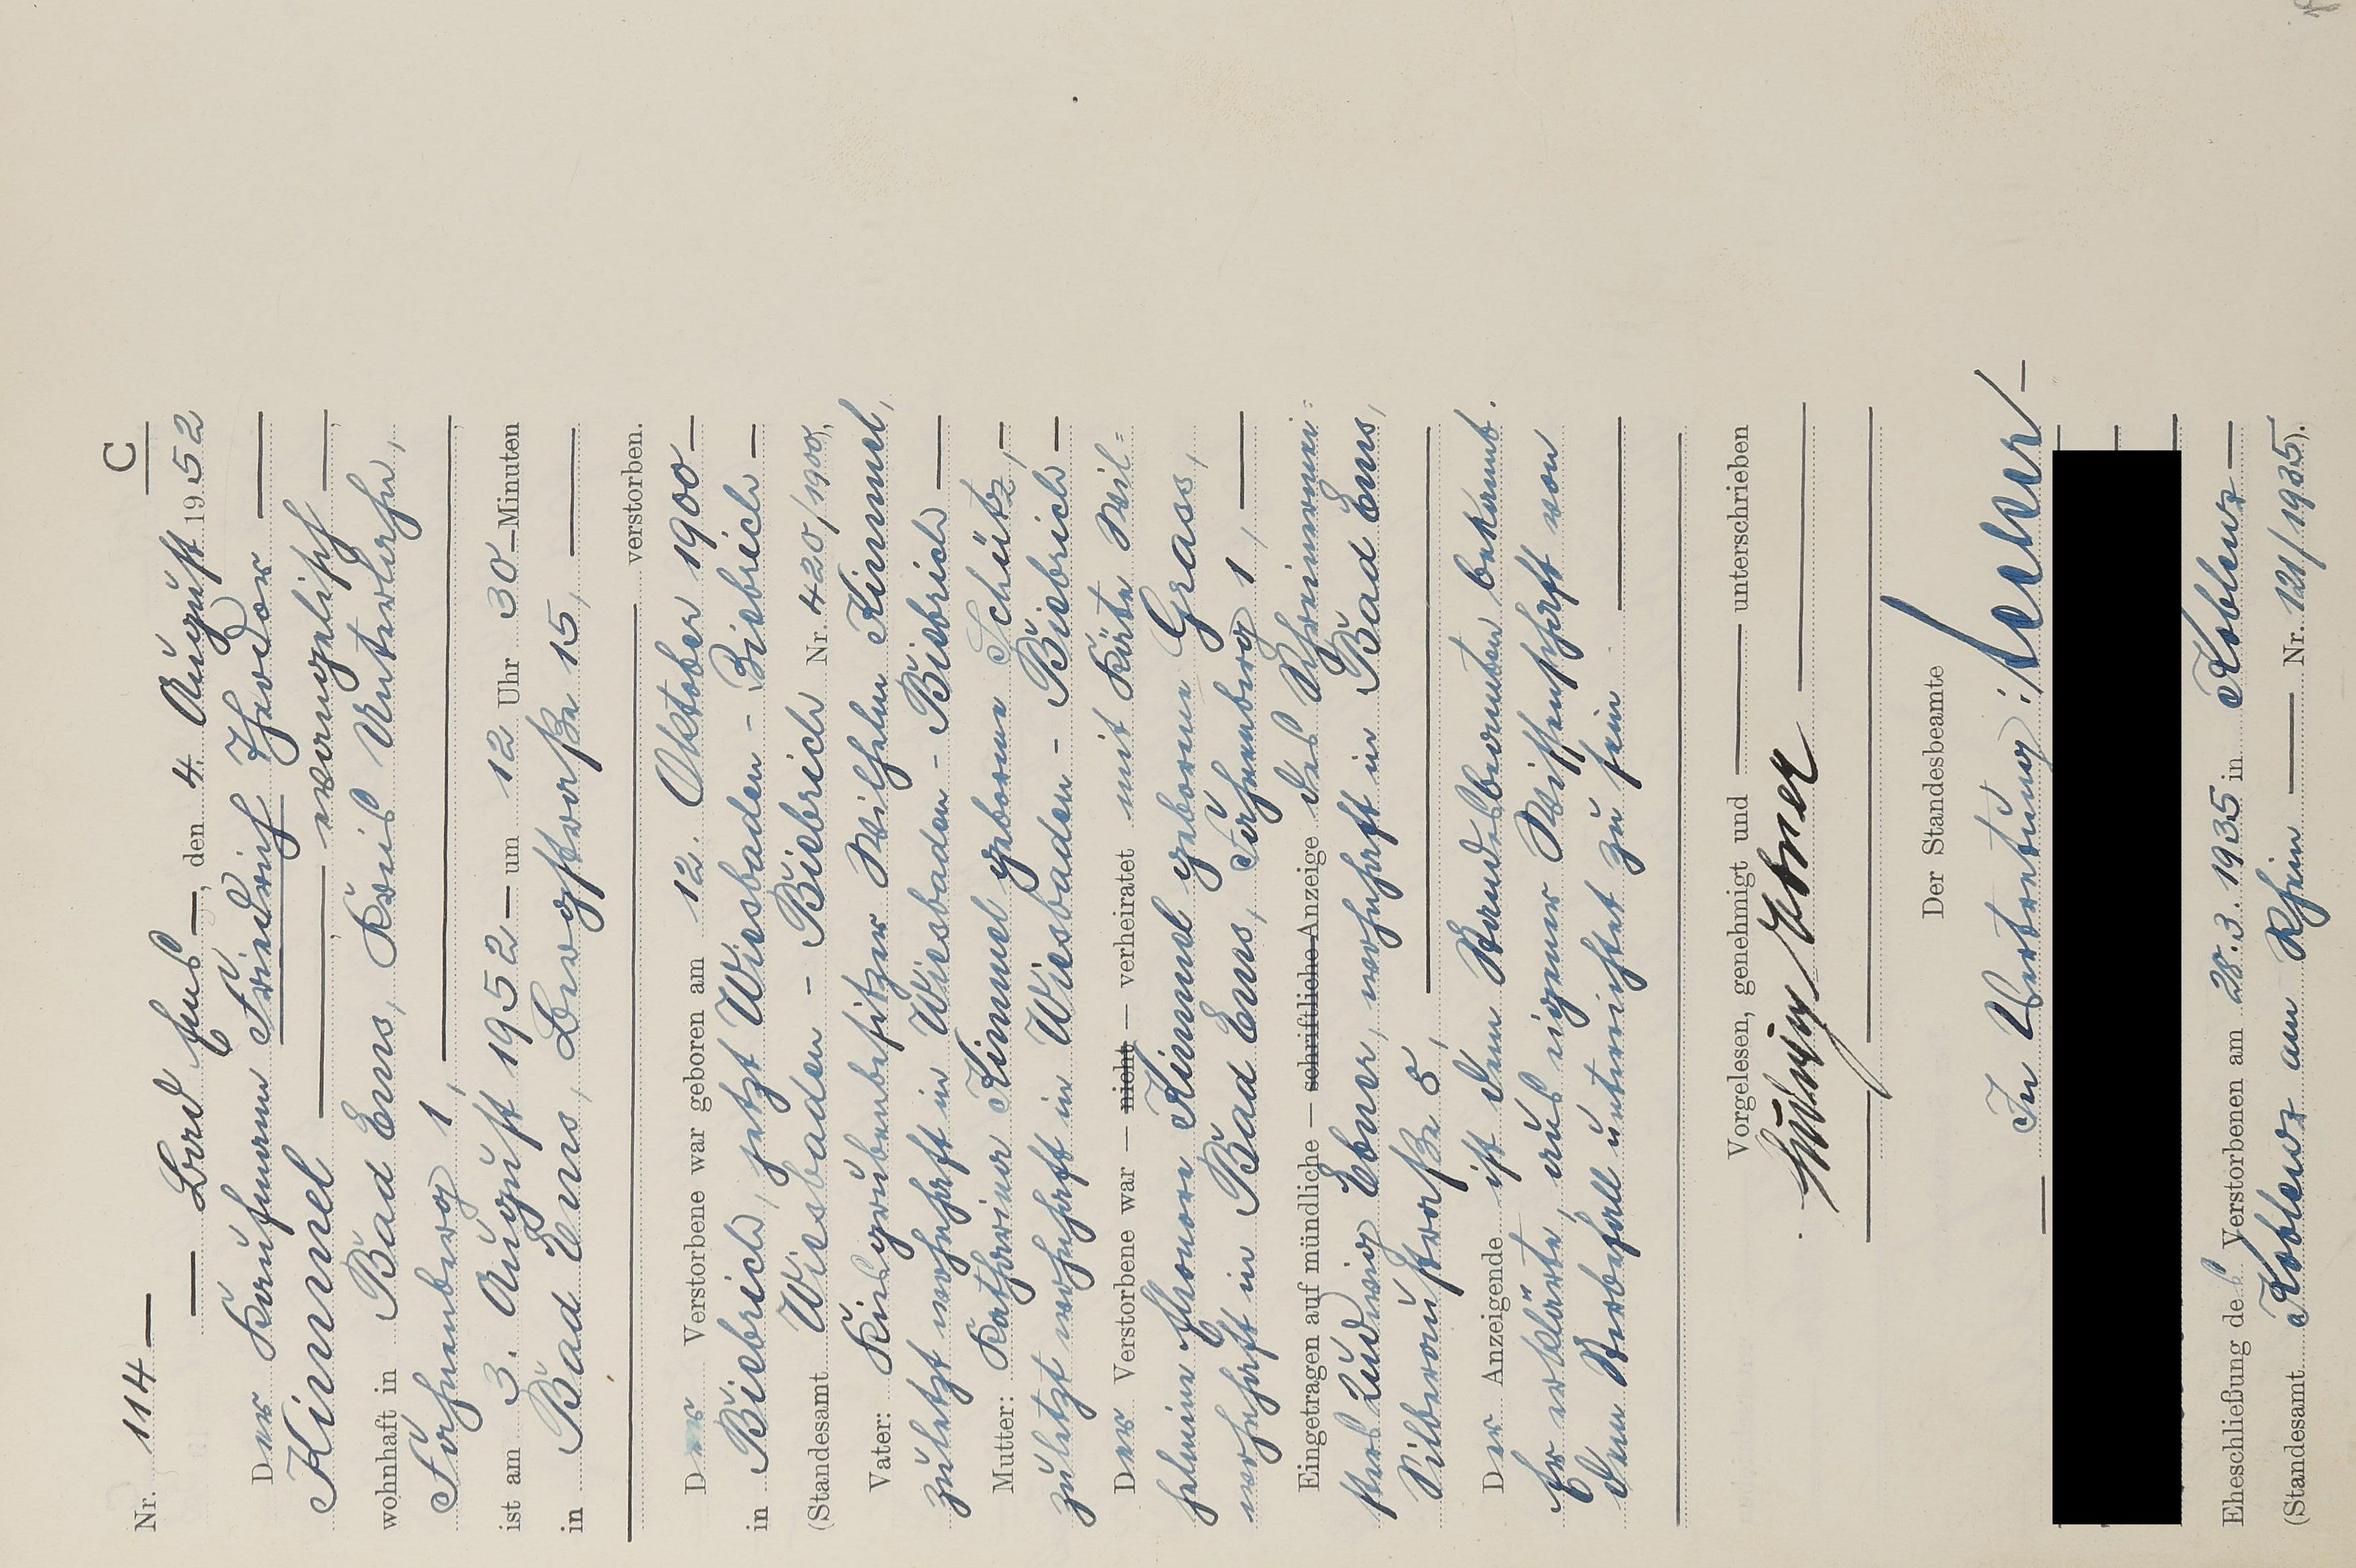 C
Nr. 114
Bad Ems, den 4. August 1952
Der Kaufmann Friedrich Theodor
Kimmel, evangelisch,
wohnhaft in Bad Ems, Kreis Unterlahn,
Fahnenberg 1,
ist am 3. August 1952 um 12 Uhr 30 Minuten
in Bad Ems, Bergstraße 15,
verstorben.
Der Verstorbene war geboren am 12. Oktober 1900
in Biebrich, jetzt Wiesbaden - Biebrich
(Standesamt Wiesbaden - Biebrich Nr. 420/1900).
Vater: Kiesgrubenbesitzer Wilhelm Kimmel,
zuletzt wohnhaft in Wiesbaden - Biebrich
Mutter: Katharina Kimmel geborene Schütz,
zuletzt wohnhaft in Wiesbaden - Biebrich
Der Verstorbene war — nicht — verheiratet mit Käte Wil=
helmine Eleonore Kimmel geborene Grass,
wohnhaft in Bad Ems, Fahnenberg 1,
Eingetragen auf mündliche — schriftliche Anzeige des Schreinermei=
sters Ludwig Ebner, wohnhaft in Bad Ems,
Silberaustraße 5,
Der Anzeigende ist dem Standesbeamten bekannt.
Er erklärte, aus eigener Wissenschaft von
dem Sterbefall unterrichtet zu sein
Vorgelesen, genehmigt und unterschrieben
Ludwig Ebner
Der Standesbeamte
In Vertretung:
Eheschließung des Verstorbenen am 28.3.1935 in Koblenz
(Standesamt Koblenz am Rhein Nr. 121/1935).